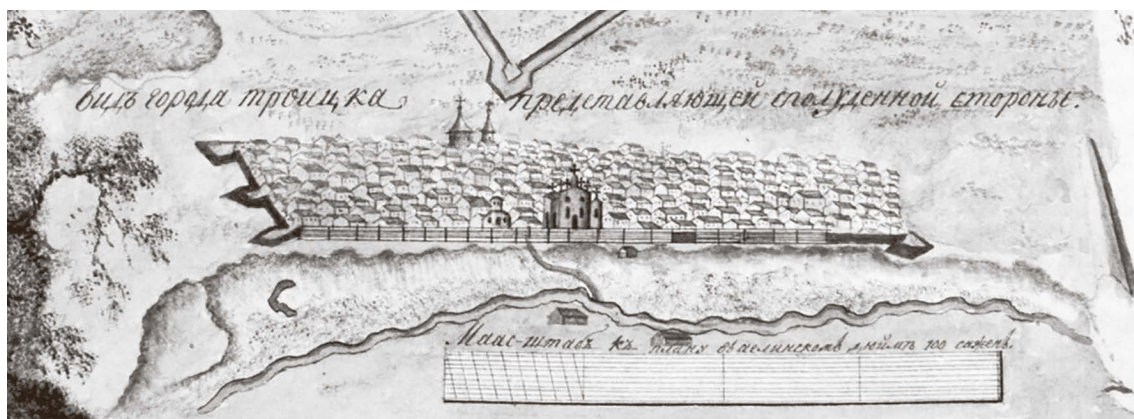 видъ города троицка представляющей сполуденной стороны.
Маас-штабъ къ плану въ аглинскомъ дюймѣ 100 саженъ.